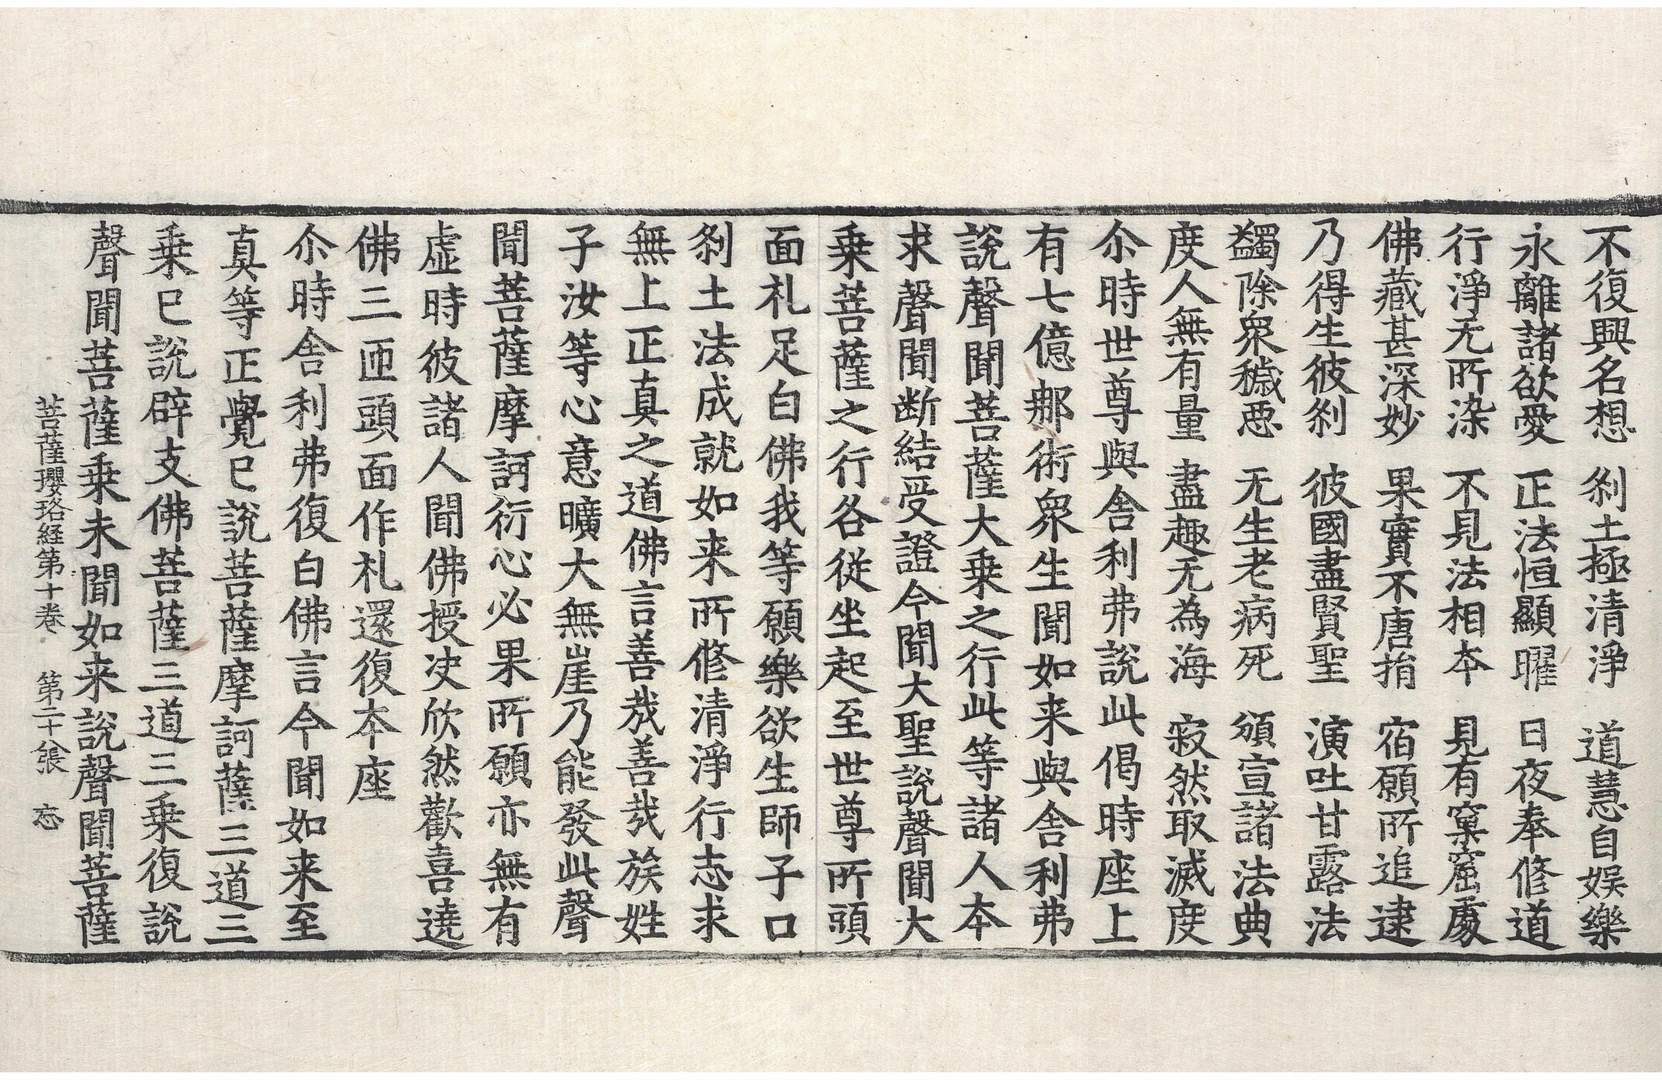 不復興名想　剎土極清淨　道慧自娛樂
永離諸欲愛　正法恒顯曜　日夜奉修道
行淨无所染　不見法相夲　見有窠窟處
佛藏甚深妙　果實不唐捐　宿願所追逮
乃得生彼剎　彼國盡賢聖　演吐甘露法
蠲除衆穢惡　无生老病死　頒宣諸法典
度人無有量　盡趣无為海　寂然取滅度
尒時世尊與舍利弗說此偈時座上
有七億那術衆生聞如来與舍利弗
說聲聞菩薩大乗之行此等諸人夲
求聲聞断結受證今聞大聖說聲聞大
乗菩薩之行各從坐起至世尊所頭
面札足白佛我等願樂欲生師子口
剎土法成就如来所修清淨行志求
無上正真之道佛言善哉善哉族姓
子汝等心意曠大無崖乃能發此聲
聞菩薩摩訶衍心必果所願亦無有
虛時彼諸人聞佛授决欣然歡喜遶
佛三匝頭面作札還復夲座
尒時舍利弗復白佛言今聞如来至
真等正覺已說菩薩摩訶薩三道三
乗已說辟支佛菩薩三道三乗復說
聲聞菩薩乗未聞如来說聲聞菩薩
菩薩瓔珞経第十卷　第二十張　忘